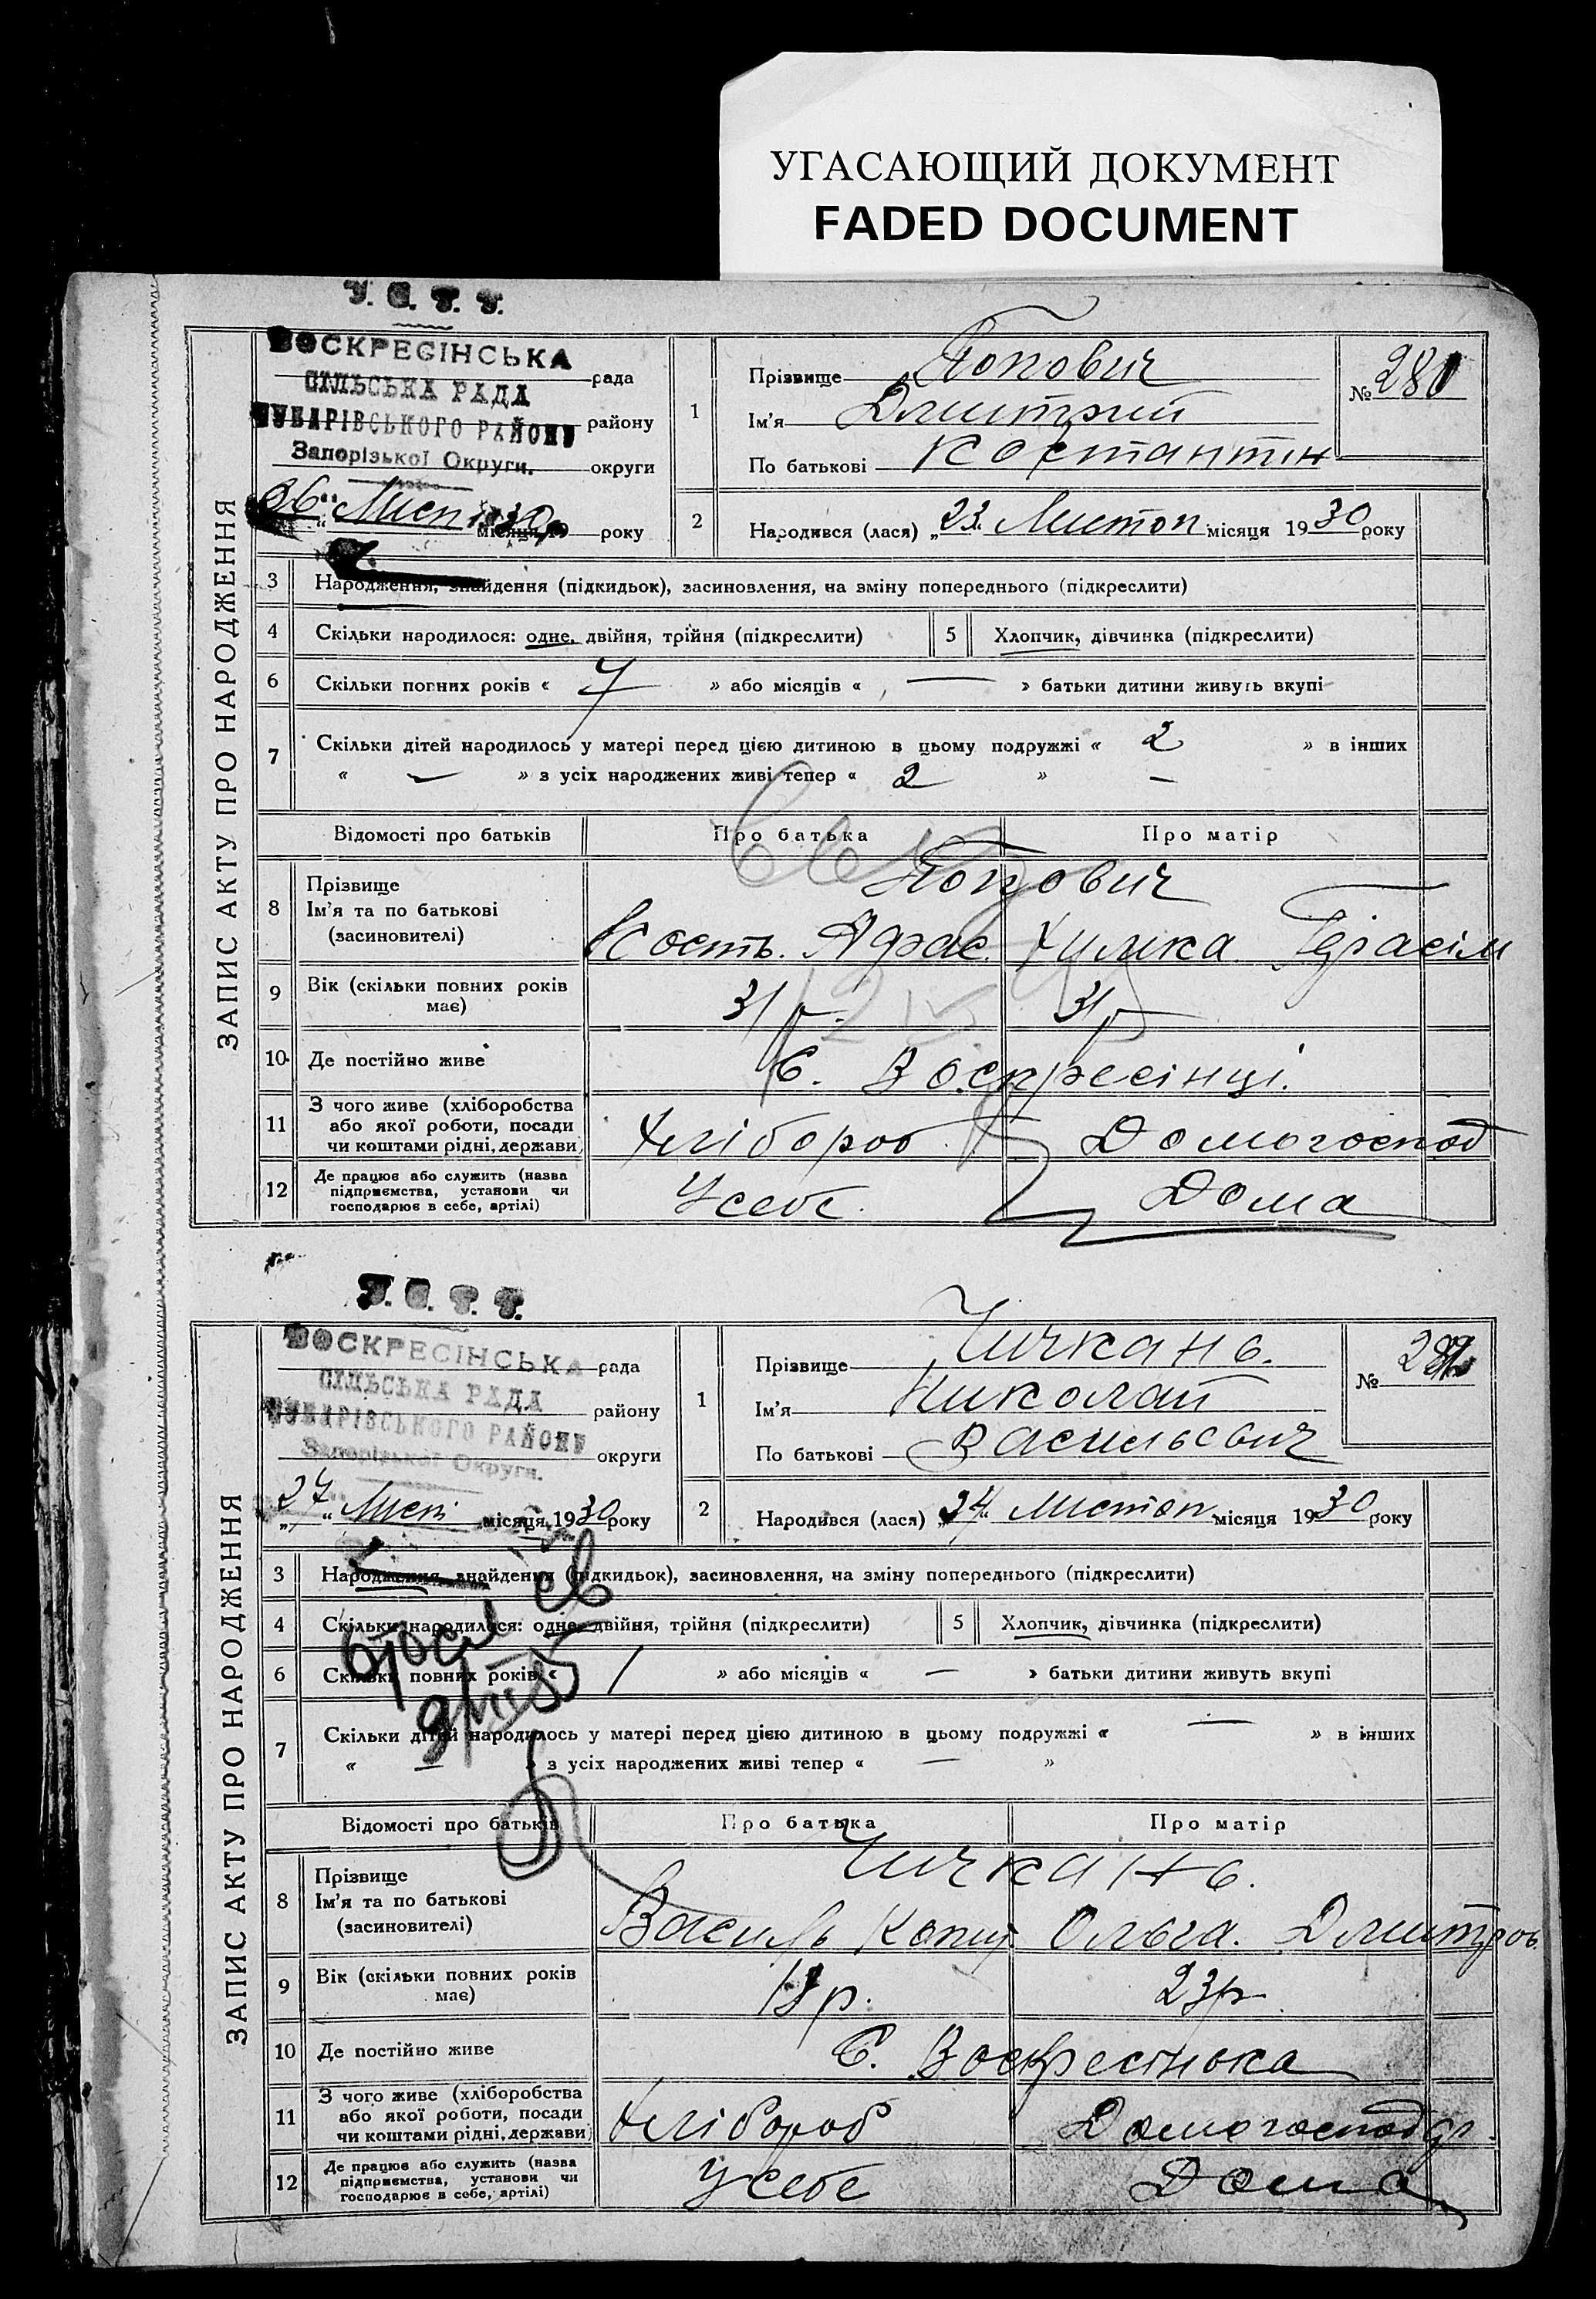 УГАСАЮЩИЙ ДОКУМЕНТ
FADED DOCUMENT
У. С. Р. Р.
ВОСКРЕСІНСЬКА рада
СІЛЬСЬКА РАДА
ЧУБАРІВСЬКОГО РАЙОНУ району
Запорізької Округи. округи
26 Лист місяця 1930 року
ЗАПИС АКТУ ПРО НАРОДЖЕННЯ
1 Прізвище Попович
Ім'я Дмитрий
По батькові Костантин
№ 281
2 Народився (лася) „23" Листоп місяця 1930 року
3 Народження, знайдення (підкидьок), засиновлення, на зміну попереднього (підкреслити)
4 Скільки народилося: одне, двійня, трійня (підкреслити) 5 Хлопчик, дівчинка (підкреслити)
6 Скільки повних років « 7 » або місяців « — » батьки дитини живуть вкупі
7 Скільки дітей народилось у матері перед цією дитиною в цьому подружжі « 2 » в інших
« — » з усіх народжених живі тепер « 2 » —
Відомості про батьків Про батька Про матір
8 Прізвище Попович
Ім'я та по батькові
(засиновителі) Кость. Афас. Герасім
9 Вік (скільки повних років має) 31 р. 31 р
10 Де постійно живе С. Воскресінці.
11 З чого живе (хліборобства
або якої роботи, посади
чи коштами рідні, держави) Хлібороб Домогоспод
12 Де працює або служить (назва
підприємства, установи чи
господарює в себе, артілі) У себе. Дома
У. С. Р. Р.
ВОСКРЕСІНСЬКА рада
СІЛЬСЬКА РАДА
ЧУБАРІВСЬКОГО РАЙОНУ району
Запорізької Округи. округи
„27" Лист місяця 1930 року
ЗАПИС АКТУ ПРО НАРОДЖЕННЯ
1 Прізвище Чичкань.
Ім'я Николай
По батькові Васильевич
№ 282
2 Народився (лася) „24" Листоп місяця 1930 року
3 Народження, знайдення (підкидьок), засиновлення, на зміну попереднього (підкреслити)
4 Скільки народилося: одне, двійня, трійня (підкреслити) 5 Хлопчик, дівчинка (підкреслити)
6 Скільки повних років « 1 » або місяців « — » батьки дитини живуть вкупі
7 Скільки дітей народилось у матері перед цією дитиною в цьому подружжі « — » в інших
« — » з усіх народжених живі тепер « — »
Відомості про батьків Про батька Про матір
8 Прізвище Чичкань.
Ім'я та по батькові
(засиновителі) Василь Ольга. Дмитров.
9 Вік (скільки повних років має) 18 р. 23 р
10 Де постійно живе С. Воскресінька
11 З чого живе (хліборобства
або якої роботи, посади
чи коштами рідні, держави) Хлібороб Домогосподар.
12 Де працює або служить (назва
підприємства, установи чи
господарює в себе, артілі) У себе Дома